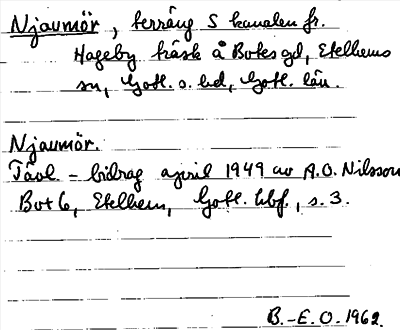 Njaumör, terräng S kanalen fr.
Hageby träsk å Botes gd, Etelhems
sn, Gotl. s. hd, Gotl. län.
Njaumör.
Tävl.-bidrag april 1949 av A.O. Nilsson
Bot 6, Etelhem, Gotl. hbf., s. 3.
B.-E. O. 1962.